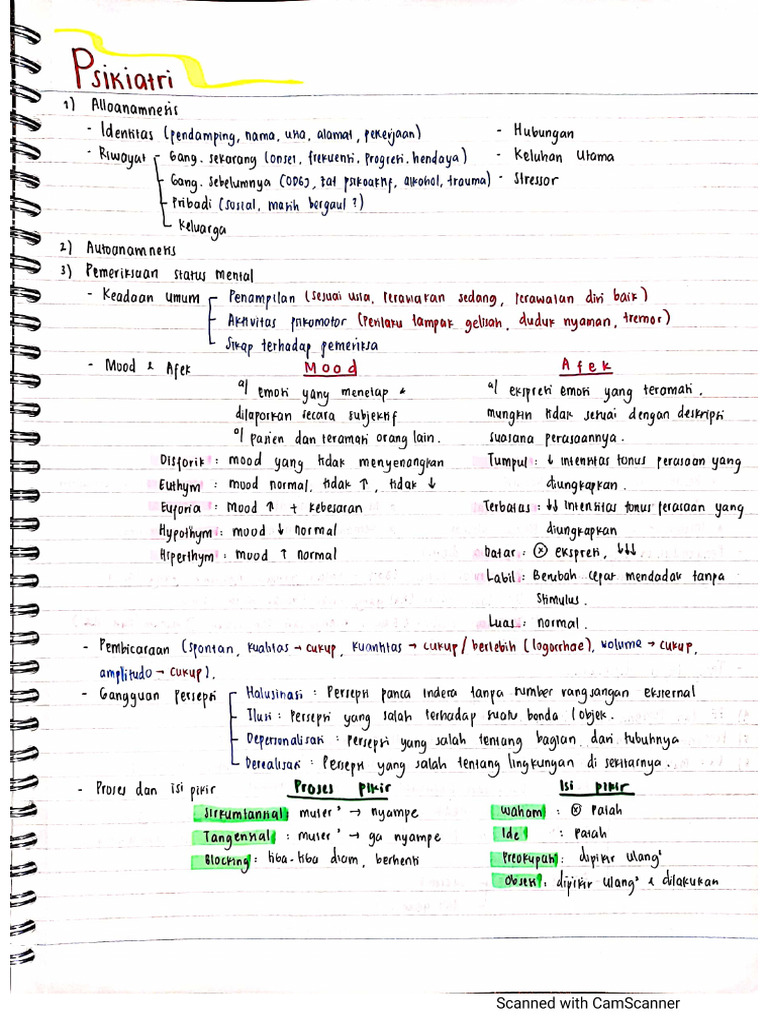 Psikiatri
1) Alloanamnesis
- Identitas (pendamping, nama, usia, alamat, pekerjaan) - Hubungan
- Riwayat - Gang. sekarang (onset, frekuensi, progresi, hendaya) - Keluhan Utama
Gang. sebelumnya (ODGJ, zat psikoaktif, alkohol, trauma) - Stressor
Pribadi (sosial, masih bergaul?)
Keluarga
2) Autoanamnesis
3) Pemeriksaan status mental
- Keadaan umum - Penampilan (sesuai usia, perawakan sedang, perawatan diri baik)
Aktivitas psikomotor (perilaku tampak gelisah, duduk nyaman, tremor)
Sikap terhadap pemeriksa
- Mood & Afek
Mood
a/ emosi yang menetap &
dilaporkan secara subjektif
o/ pasien dan teramati orang lain.
Disforik : mood yang tidak menyenangkan
Euthym : mood normal, tidak ↑, tidak ↓
Euforia : Mood ↑ + kebesaran
Hypothym : mood ↓ normal
Hiperthym : mood ↑ normal
Afek
a/ ekspresi emosi yang teramati.
mungkin tidak sesuai dengan deskripsi
suasana perasaannya.
Tumpul : ↓ intensitas tonus perasaan yang
diungkapkan.
Terbatas : ↓↓ intensitas tonus perasaan yang
diungkapkan
Datar : ⊗ ekspresi, ↓↓↓
Labil : Berubah cepat mendadak tanpa
stimulus.
Luas : normal.
- Pembicaraan (spontan, kualitas → cukup, kuantitas → cukup / berlebih (logorrhae), volume → cukup,
amplitudo → cukup).
- Gangguan persepsi - Halusinasi : Persepsi panca indera tanpa sumber rangsangan eksternal
Ilusi : Persepsi yang salah terhadap suatu benda / objek.
Depersonalisasi : persepsi yang salah tentang bagian dari tubuhnya
Derealisasi : Persepsi yang salah tentang lingkungan di sekitarnya.
- Proses dan isi pikir
Proses pikir
Sirkumtansial : muter² → nyampe
Tangensial : muter² → ga nyampe
Blocking : tiba-tiba diam, berhenti
Isi pikir
Waham : ⊗ patah
Ide : patah
Preokupasi : dipikir ulang²
Obsesi : dipikir ulang² & dilakukan
Scanned with CamScanner